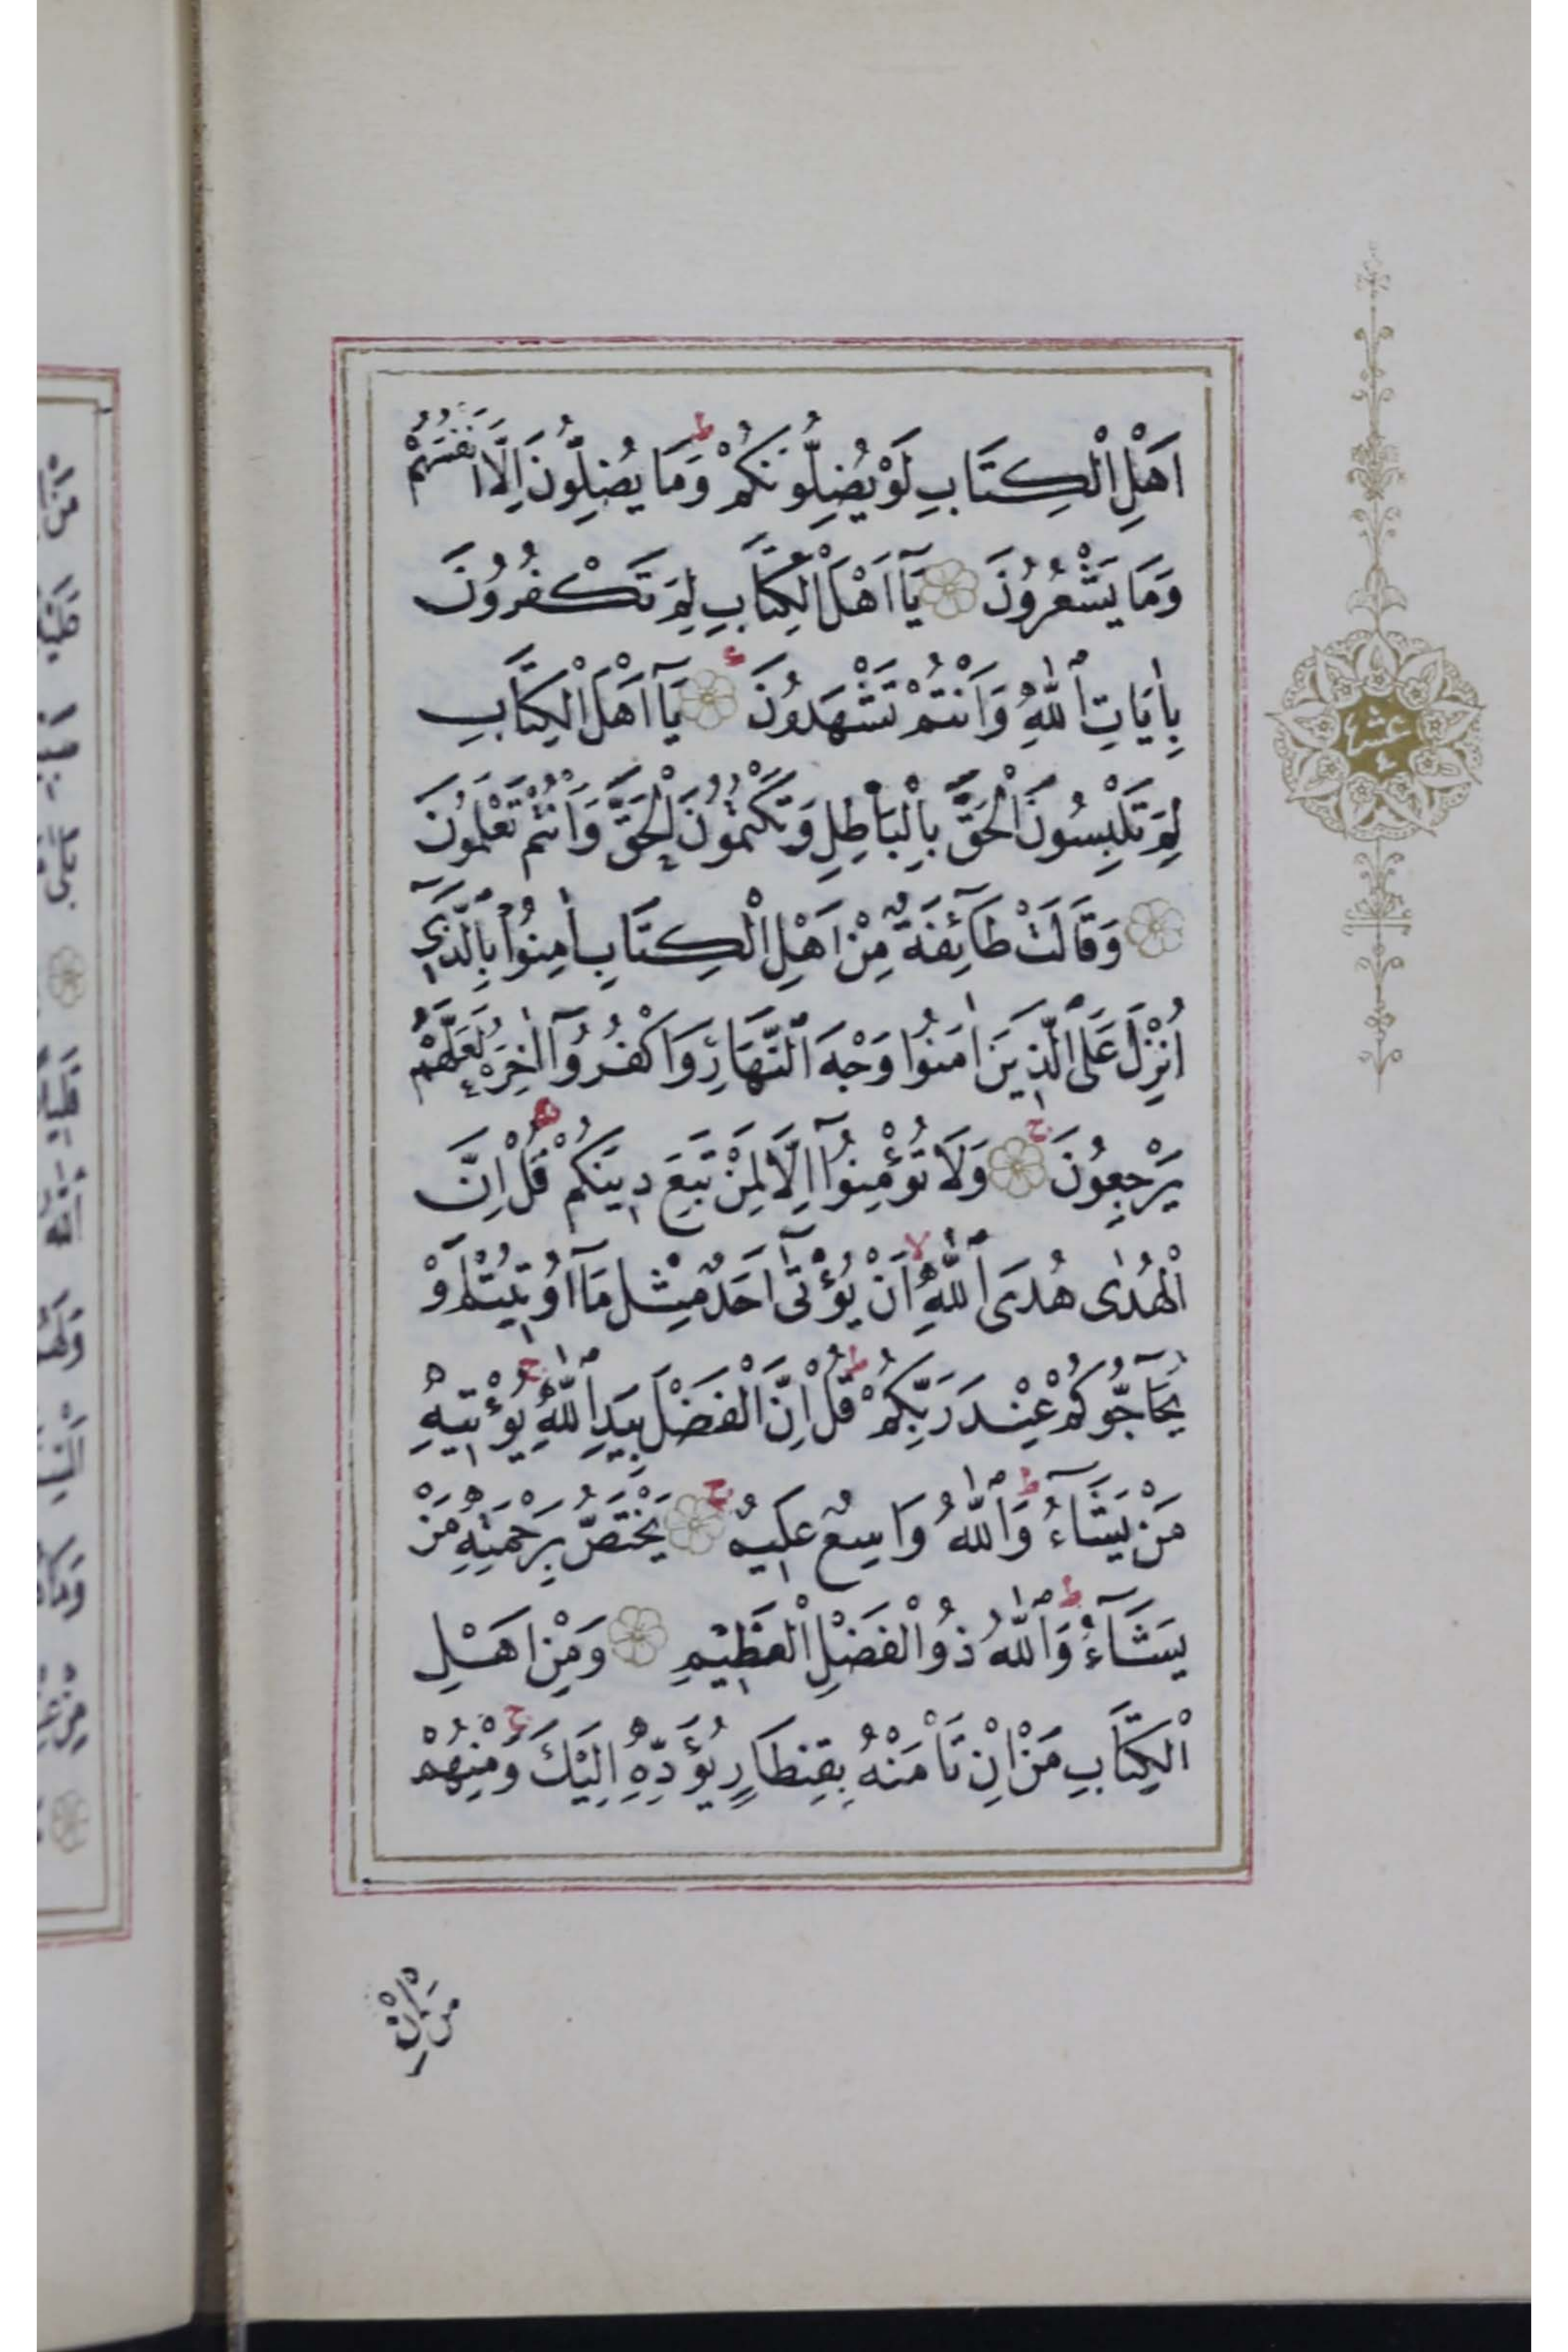 اَهْلِ الْكِتَابِ لَوْ يُضِلُّونَكُمْ ط وَمَا يُضِلُّونَ اِلَّا اَنْفُسَهُمْ
وَمَا يَشْعُرُونَ يَآ اَهْلَ الْكِتَابِ لِمَ تَكْفُرُونَ
بِاٰيَاتِ اللّٰهِ وَاَنْتُمْ تَشْهَدُونَ يَآ اَهْلَ الْكِتَابِ
لِمَ تَلْبِسُونَ الْحَقَّ بِالْبَاطِلِ وَتَكْتُمُونَ الْحَقَّ وَاَنْتُمْ تَعْلَمُونَ
وَقَالَتْ طَآئِفَةٌ مِنْ اَهْلِ الْكِتَابِ اٰمِنُوا بِالَّذِٓي
اُنْزِلَ عَلَى الَّذِينَ اٰمَنُوا وَجْهَ النَّهَارِ وَاكْفُرُوٓا اٰخِرَهُ لَعَلَّهُمْ
يَرْجِعُونَ ج وَلَا تُؤْمِنُوٓا اِلَّا لِمَنْ تَبِعَ دِينَكُمْ قُلْ اِنَّ
الْهُدٰى هُدَى اللّٰهِ لا اَنْ يُؤْتٰٓى اَحَدٌ مِثْلَ مَآ اُو۫تِيتُمْ اَوْ
يُحَآجُّوكُمْ عِنْدَ رَبِّكُمْ ط قُلْ اِنَّ الْفَضْلَ بِيَدِ اللّٰهِ ج يُؤْتِيهِ
مَنْ يَشَٓاءُ ط وَاللّٰهُ وَاسِعٌ عَلِيمٌ ج يَخْتَصُّ بِرَحْمَتِهِ مَنْ
يَشَٓاءُ ط وَاللّٰهُ ذُو الْفَضْلِ الْعَظِيمِ وَمِنْ اَهْلِ
الْكِتَابِ مَنْ اِنْ تَأْمَنْهُ بِقِنْطَارٍ يُؤَدِّهِ اِلَيْكَ ج وَمِنْهُمْ
مَنْ اِنْ
عشر